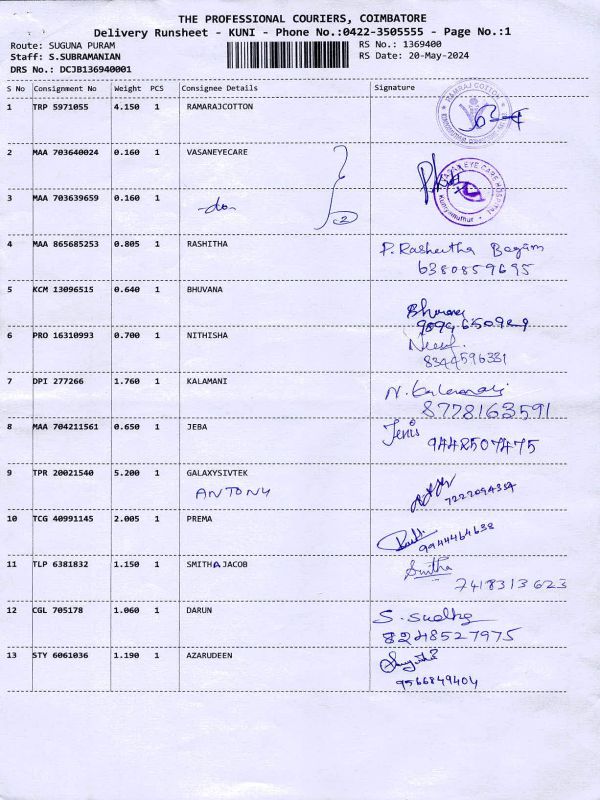 THE PROFESSIONAL COURIERS, COIMBATORE
Delivery Runsheet - KUNI - Phone No.:0422-3505555 - Page No.:1
Route: SUGUNA PURAM
RS No.: 1369400
Staff: S.SUBRAMANIAN
RS Date: 20-May-2024
DRS No.: DCJB136940001
S No Consignment No Weight PCS Consignee Details Signature
1 TRP 5971055 4.150 1 RAMARAJCOTTON
RAMRAJ COTTON
2 MAA 703640024 0.160 1 VASANEYECARE
EYE CARE HOSPITAL
3 MAA 703639659 0.160 1
-do-
2
4 MAA 865685253 0.805 1 RASHITHA
P. Rasheetha Begam
6380859695
5 KCM 13096515 0.640 1 BHUVANA
Bhuvana
6 PRO 16310993 0.700 1 NITHISHA
8344596331
7 DPI 277266 1.760 1 KALAMANI
N. Kalamani
8778163591
8 MAA 704211561 0.650 1 JEBA
Jenis
9442507475
9 TPR 20021540 5.200 1 GALAXYSIVTEK
ANTONY
7222094334
10 TCG 40991145 2.005 1 PREMA
9944464638
11 TLP 6381832 1.150 1 SMITHAJACOB
Smitha
7418313623
12 CGL 705178 1.060 1 DARUN
S. Sudha
8248527975
13 STY 6061036 1.190 1 AZARUDEEN
9566849404